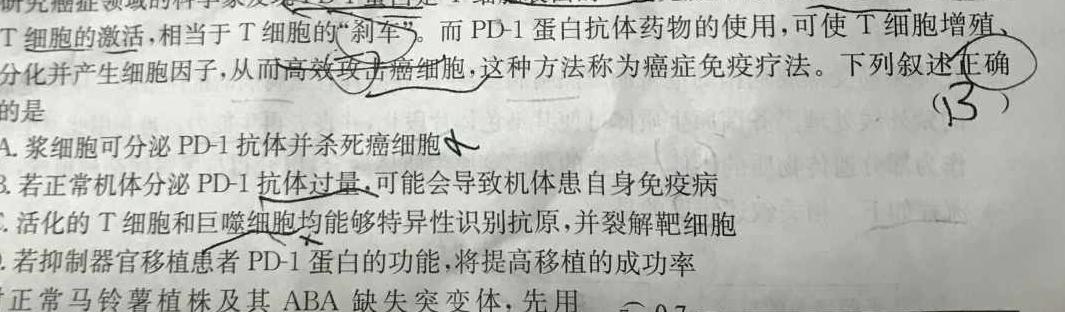 研究癌症领域的科学家发现
T 细胞的激活,相当于 T 细胞的“刹车”。而 PD-1 蛋白抗体药物的使用,可使 T 细胞增殖、
分化并产生细胞因子,从而高效攻击癌细胞,这种方法称为癌症免疫疗法。下列叙述正确
的是 (B)
A. 浆细胞可分泌 PD-1 抗体并杀死癌细胞
B. 若正常机体分泌 PD-1 抗体过量,可能会导致机体患自身免疫病
C. 活化的 T 细胞和巨噬细胞均能够特异性识别抗原,并裂解靶细胞
D. 若抑制器官移植患者 PD-1 蛋白的功能,将提高移植的成功率
正常马铃薯植株及其 ABA 缺失突变体,先用